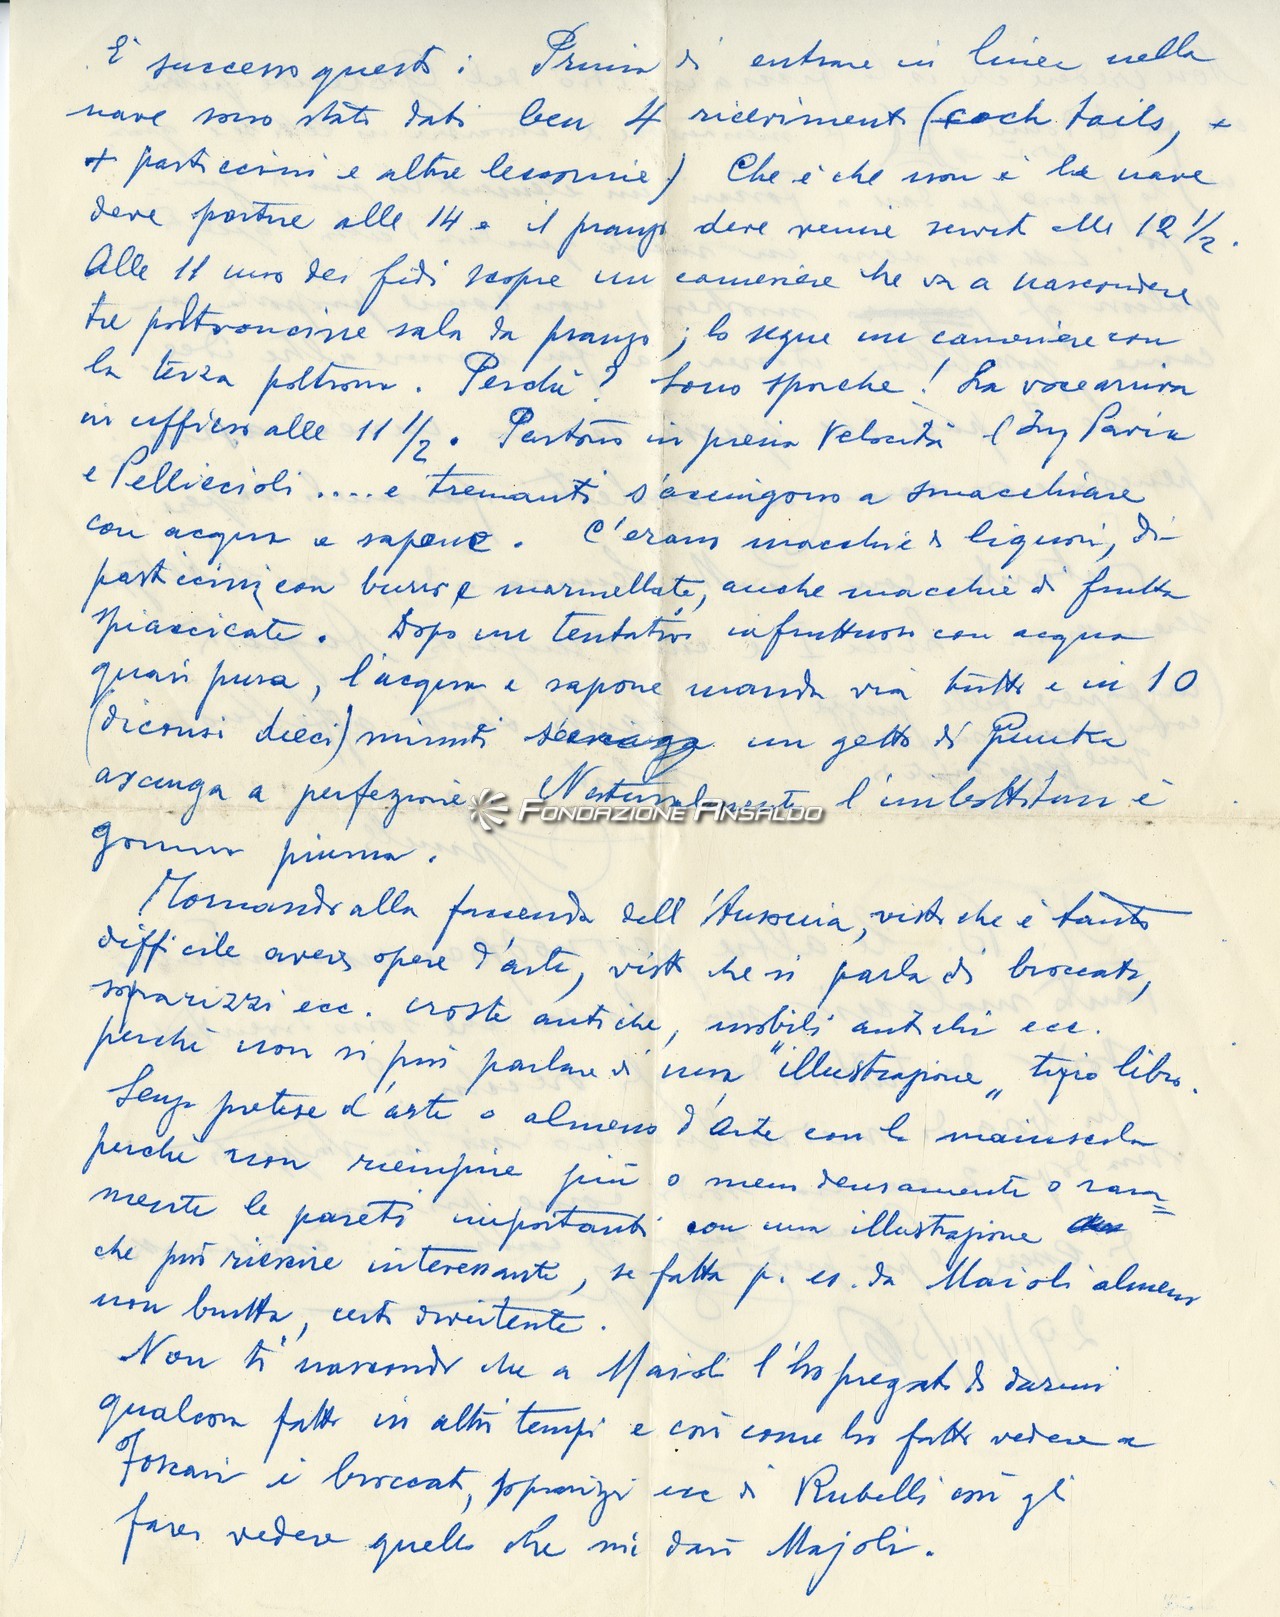 È successo questo: Prima di entrare in linea nella
nave sono stati dati ben 4 ricevimenti (coch tails, +
+ pasticcini e altre leccornie) Che è che non è la nave
deve partire alle 14 e il pranzo deve venire servito alle 12 1/2.
Alle 11 uno dei fidi scopre un cameriere che va a nascondere
tre poltroncine sala da pranzo; lo segue un cameriere con
la terza poltrona. Perchè? Sono sporche! La voce arriva
in ufficio alle 11 1/2. Partono in piena velocità (Ing Pavia
e Pelliccioli .... e tremanti s'accingono a smacchiare
con acqua e sapone. C'erano macchie di liquori, di
pasticcini con burro e marmellate, anche macchie di frutta
spiaccicate. Dopo un tentativo infruttuoso con acqua
quasi pura, l'acqua e sapone manda via tutto e in 10
(diconsi dieci) minuti un getto di
asciuga a perfezione Naturalmente l'imbottitura è
gomma piuma.
FONDAZIONE ANSALDO
Tornando alla faccenda dell'Ausonia, visto che è tanto
difficile avere opere d'arte, visto che si parla di broccato,
soprarizzi ecc. croste antiche, mobili antichi ecc.
perchè non si può parlare di una "illustrazione" tipo libro.
Senza pretese d'arte o almeno d'Arte con la maiuscola
perchè non riempire più o meno densamente o rara=
mente le pareti importanti con una illustrazione
che può riescire interessante, se fatta p. es. da Maioli almeno
non brutta, certo divertente.
Non ti nascondo che a Maioli l'ho pregato di darmi
qualcosa fatto in altri tempi e così come ho fatto vedere a
i broccati, soprarizzi ecc di Rubelli così gli
farei vedere quello che mi darà Majoli.